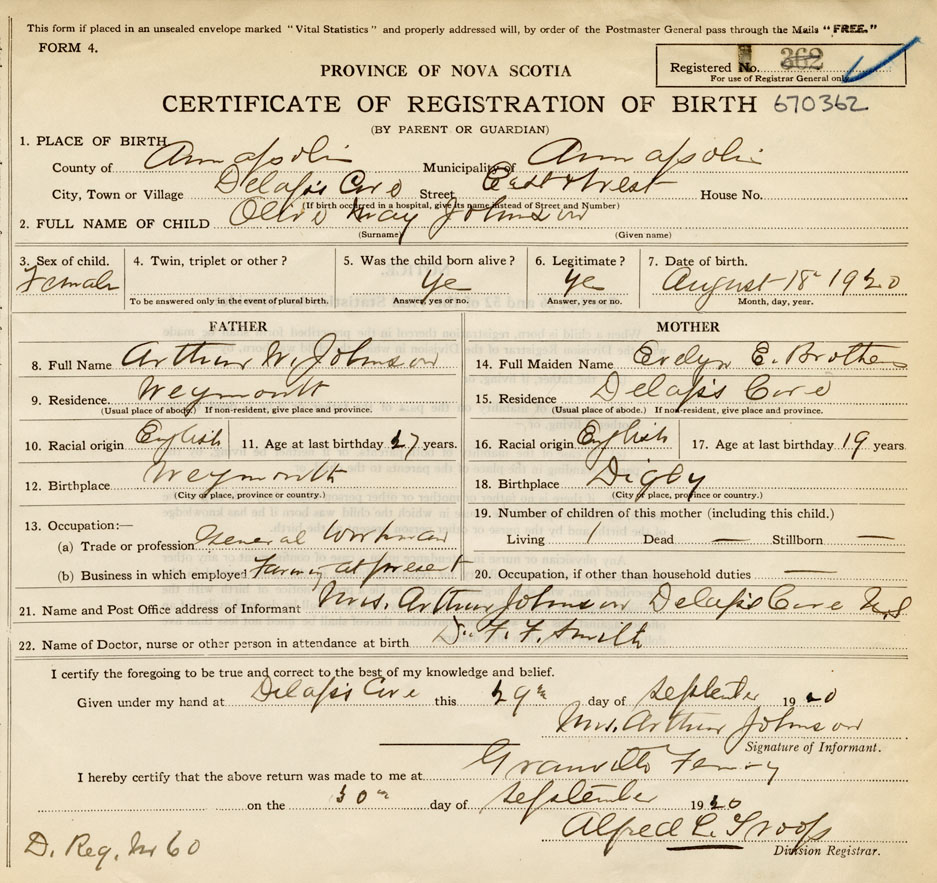 This form if placed in an unsealed envelope marked "Vital Statistics" and properly addressed will, by order of the Postmaster General pass through the Mails "FREE."
FORM 4.
Registered No. 362
For use of Registrar General only
PROVINCE OF NOVA SCOTIA
CERTIFICATE OF REGISTRATION OF BIRTH 670362
(BY PARENT OR GUARDIAN)
1. PLACE OF BIRTH
County of Annapolis Municipality of Annapolis
City, Town or Village Delap's Cove Street East & West House No.
(If birth occurred in a hospital, give its name instead of Street and Number)
2. FULL NAME OF CHILD Olive May Johnson
(Surname) (Given name)
3. Sex of child. 4. Twin, triplet or other? 5. Was the child born alive? 6. Legitimate? 7. Date of birth.
Female Ye Ye August 18 1920
To be answered only in the event of plural birth. Answer, yes or no. Answer, yes or no. Month, day, year.
FATHER
8. Full Name Arthur W. Johnson
9. Residence. Weymouth
(Usual place of abode.) If non-resident, give place and province.
10. Racial origin English 11. Age at last birthday 27 years.
12. Birthplace Weymouth
(City or place, province or country.)
13. Occupation:—
(a) Trade or profession General Workman
(b) Business in which employed Farming at present
MOTHER
14. Full Maiden Name Evelyn E. Brothers
15. Residence Delap's Cove
(Usual place of abode.) If non-resident, give place and province.
16. Racial origin English 17. Age at last birthday 19 years
18. Birthplace Digby
(City or place, province or country.)
19. Number of children of this mother (including this child.)
Living 1 Dead — Stillborn —
20. Occupation, if other than household duties —
21. Name and Post Office address of Informant Mrs. Arthur Johnson Delap's Cove N.S
22. Name of Doctor, nurse or other person in attendance at birth Dr. F. F. Smith
I certify the foregoing to be true and correct to the best of my knowledge and belief.
Given under my hand at Delap's Cove this 29th day of September 1920
Mrs. Arthur Johnson
Signature of Informant.
I hereby certify that the above return was made to me at Granville Ferry
on the 30th day of September 1920
Alfred C. Troop
Division Registrar.
D. Reg. No 60